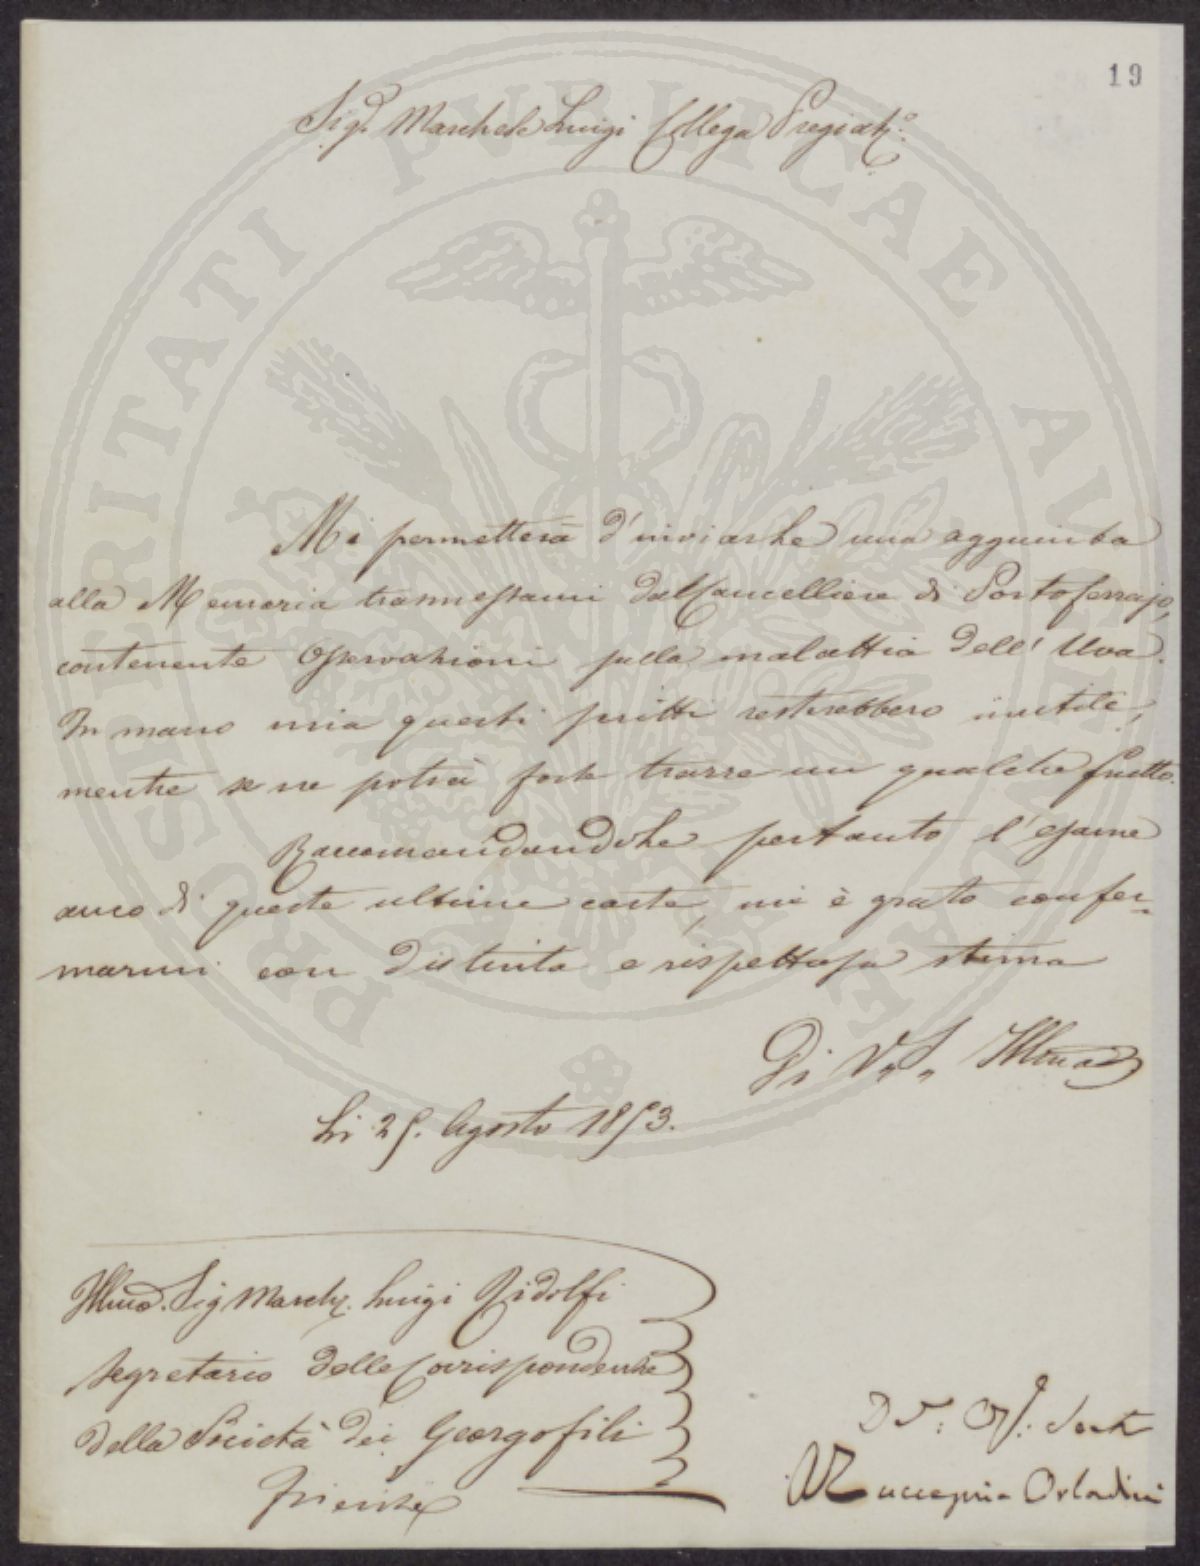 19
Sigr. Marchese Luigi Collega Pregiatmo.
Mi permetterà d'inviarLe una aggiunta
alla Memoria trasmessami dal Cancelliere di Portoferrajo,
contenente Osservazioni sulla malattia dell'Uva.
In mano mia questi scritti resterebbero inutile,
mentre se ne potrà forse trarre un qualche frutto.
RaccomandandoLe pertanto l'esame
anco di queste ultime carte, mi è grato confer-
marmi con distinta e rispettosa stima
Di V. S. Illma
Li 25. Agosto 1853.
Illmo. Sig March. Luigi Ridolfi
Segretario delle Corrispondenze
della Società dei Georgofili
Firenze
Orlandini
PROSPERITATI PUBLICAE AUGENDAE